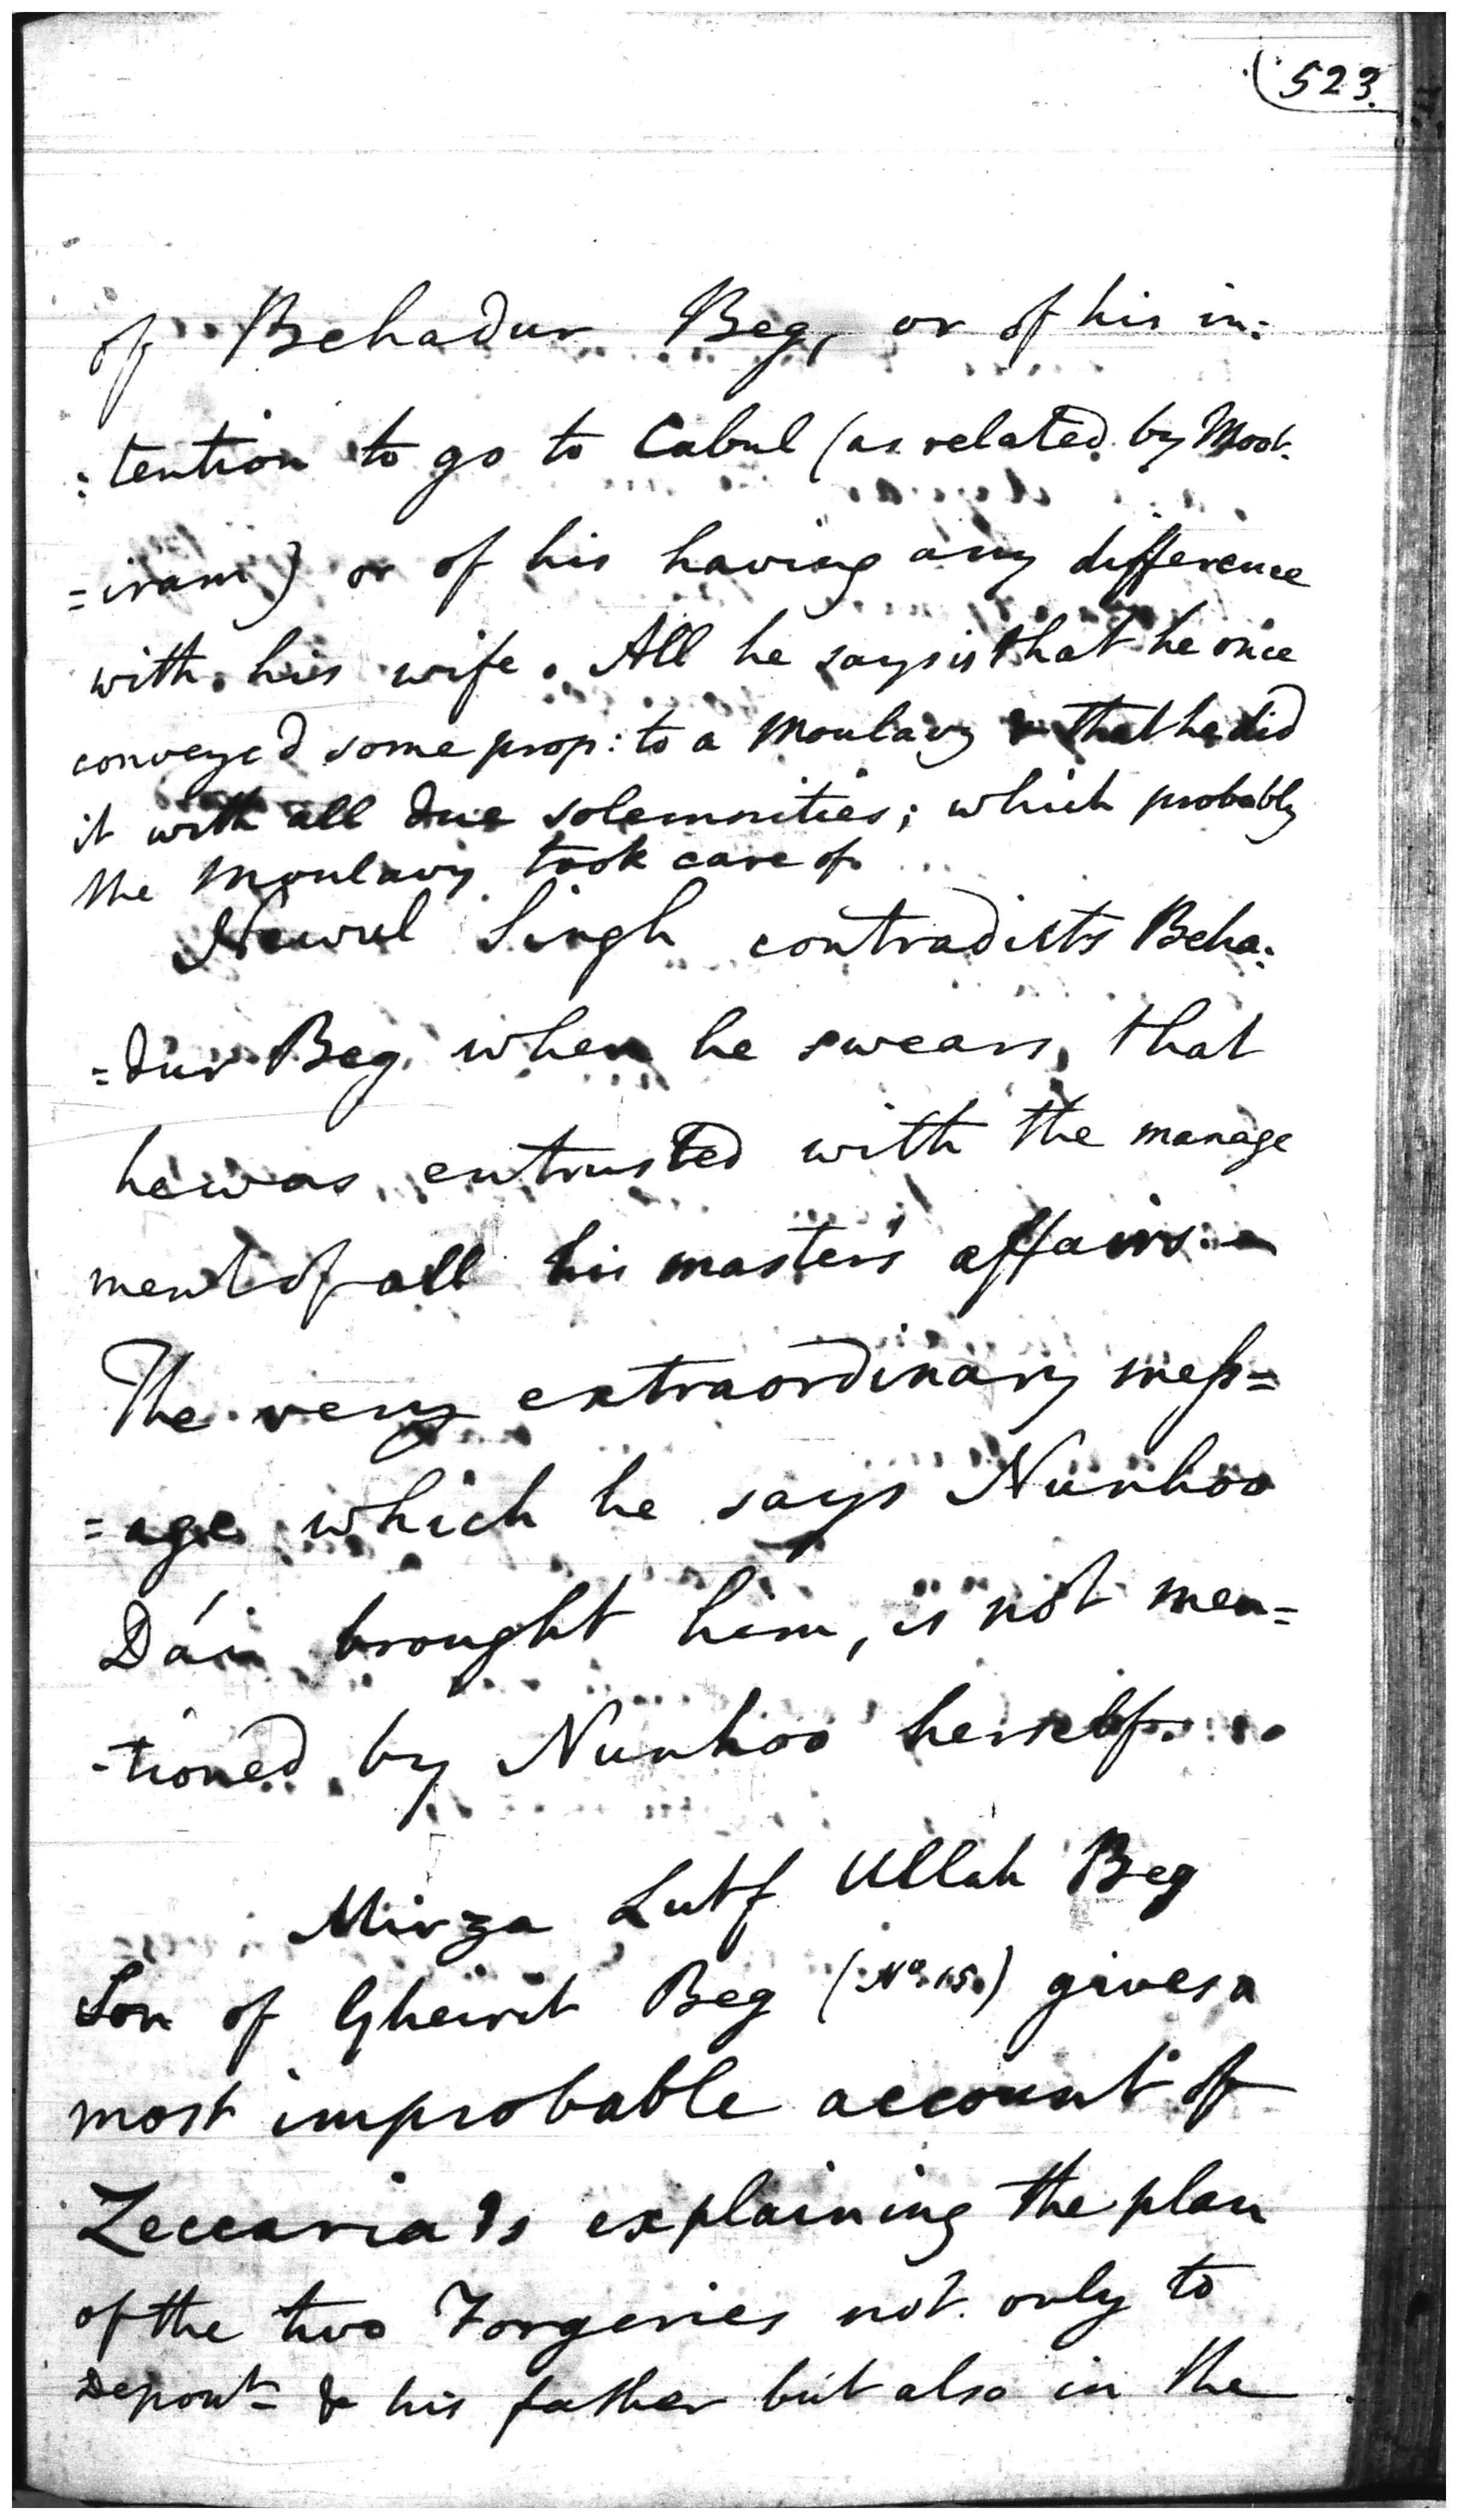 523.
of Behadur Beg, or of his in:
:tention to go to Cabul (as related by Moot:
=iram) or of his having any difference
with his wife. All he says is that he once
conveyed some prop: to a Moulavy & that he did
it with all due solemnities; which probably
the Moulavy took care of.
Newul Singh contradicts Beha:
=dur Beg when he swears, that
he was entrusted with the manage
ment of all his master's affairs.
The very extraordinary mess=
=age which he says Nunhoo
Dái brought him, is not men=
-tioned by Nunhoo herself.
Mirza Lutf Ullah Beg
Son of Gheirit Beg (No. 15.) gives a
most improbable account of
Zeccaria's explaining the plan
of the two Forgeries not only to
Depont & his father but also in the